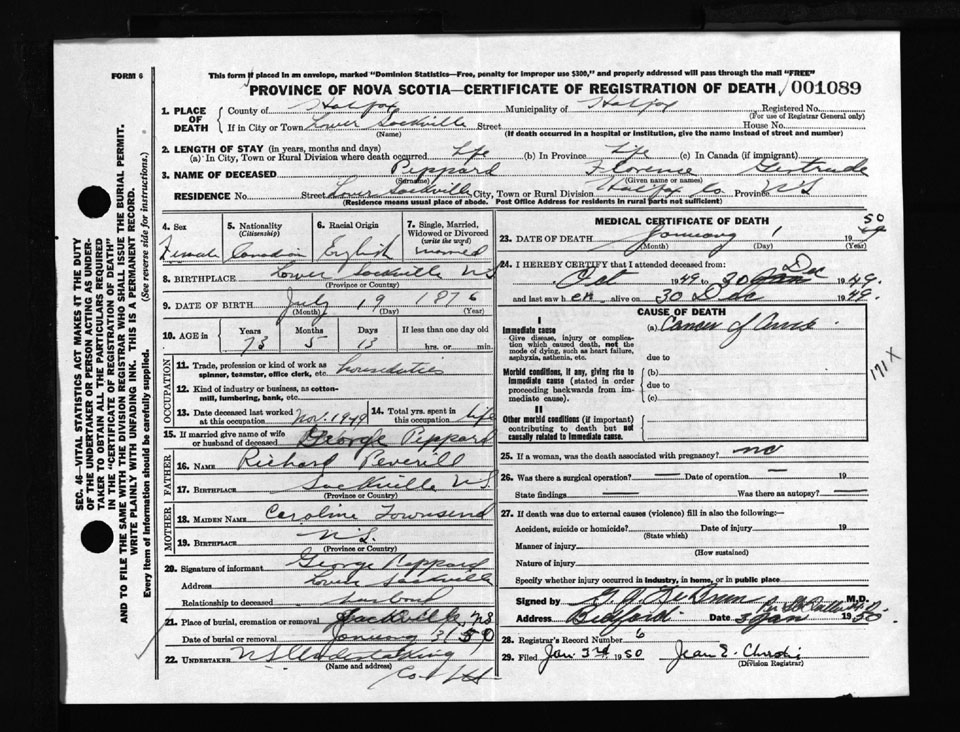 FORM 6
This form if placed in an envelope, marked "Dominion Statistics—Free, penalty for improper use $300," and properly addressed will pass through the mail "FREE"
PROVINCE OF NOVA SCOTIA—CERTIFICATE OF REGISTRATION OF DEATH 001089
1. PLACE OF DEATH County of Halifax Municipality of Halifax Registered No.
(For use of Registrar General only)
If in City or Town Lower Sackville Street House No.
(Name) (If death occurred in a hospital or institution, give the name instead of street and number)
2. LENGTH OF STAY (in years, months and days)
(a) In City, Town or Rural Division where death occurred Life (b) In Province Life (c) In Canada (if immigrant)
3. NAME OF DECEASED Peppard Florence Gertrude
(Surname) (Given name or names)
RESIDENCE No. Street Lower Sackville City, Town or Rural Division Halifax Co Province NS
(Residence means usual place of abode. Post Office Address for residents in rural parts not sufficient)
4. Sex 5. Nationality (Citizenship) 6. Racial Origin 7. Single, Married, Widowed or Divorced (write the word)
Female Canadian English Married
8. BIRTHPLACE Lower Sackville NS
(Province or Country)
9. DATE OF BIRTH July 19 1876
(Month) (Day) (Year)
10. AGE in Years Months Days If less than one day old
73 5 13 hrs. or min.
OCCUPATION
11. Trade, profession or kind of work as spinner, teamster, office clerk, etc. housduties
12. Kind of industry or business, as cotton-mill, lumbering, bank, etc.
13. Date deceased last worked at this occupation Nov. 1949 14. Total yrs. spent in this occupation life
15. If married give name of wife or husband of deceased George Peppard
FATHER
16. NAME Richard Peverill
17. BIRTHPLACE Sackville NS
(Province or Country)
MOTHER
18. MAIDEN NAME Caroline Townsend
19. BIRTHPLACE NS.
(Province or Country)
20. Signature of informant George Peppard
Address Lower Sackville
Relationship to deceased husband
21. Place of burial, cremation or removal Sackville, NS
Date of burial or removal January 3/50
22. UNDERTAKER NS Undertaking
(Name and address)
Co. Ltd
MEDICAL CERTIFICATE OF DEATH
23. DATE OF DEATH January 1 19 50
(Month) (Day) (Year)
24. I HEREBY CERTIFY that I attended deceased from:
Oct 1949 to 30 Dec 1949.
and last saw her alive on 30 Dec 1949.
CAUSE OF DEATH
I
Immediate cause
Give disease, injury or complication which caused death, not mode of dying, such as heart failure, asphyxia, asthenia, etc.
(a) Cancer of
due to
Morbid conditions, if any, giving rise to immediate cause (stated in order proceeding backwards from immediate cause).
(b)
due to
(c)
II
Other morbid conditions (if important) contributing to death but not causally related to immediate cause.
171 X
25. If a woman, was the death associated with pregnancy? no
26. Was there a surgical operation? — Date of operation — 19
State findings — Was there an autopsy? —
27. If death was due to external causes (violence) fill in also the following:—
Accident, suicide or homicide? Date of injury 19
(State which)
Manner of injury
(How sustained)
Nature of injury
Specify whether injury occurred in industry, in home, or in public place
Signed by M.D.
Address Bedford Date 3 Jan 1950.
28. Registrar's Record Number 6
29. Filed Jan 3rd 1950 Jean E. Christie
(Division Registrar)
SEC. 46—VITAL STATISTICS ACT MAKES IT THE DUTY
OF THE UNDERTAKER OR PERSON ACTING AS UNDER-
TAKER TO OBTAIN ALL THE PARTICULARS REQUIRED
IN THE "CERTIFICATE OF REGISTRATION OF DEATH"
AND TO FILE THE SAME WITH THE DIVISION REGISTRAR WHO SHALL ISSUE THE BURIAL PERMIT.
WRITE PLAINLY WITH UNFADING INK. THIS IS A PERMANENT RECORD.
Every Item of Information should be carefully supplied. (See reverse side for instructions.)